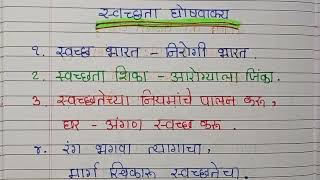 स्वच्छता घोषवाक्य
१. स्वच्छ भारत - निरोगी भारत.
२. स्वच्छता शिका - आरोग्याला जिंका.
३. स्वच्छतेच्या नियमांचे पालन करू,
घर - अंगण स्वच्छ करू.
४. रंग भगवा त्यागाचा,
मार्ग स्विकारू स्वच्छतेचा.